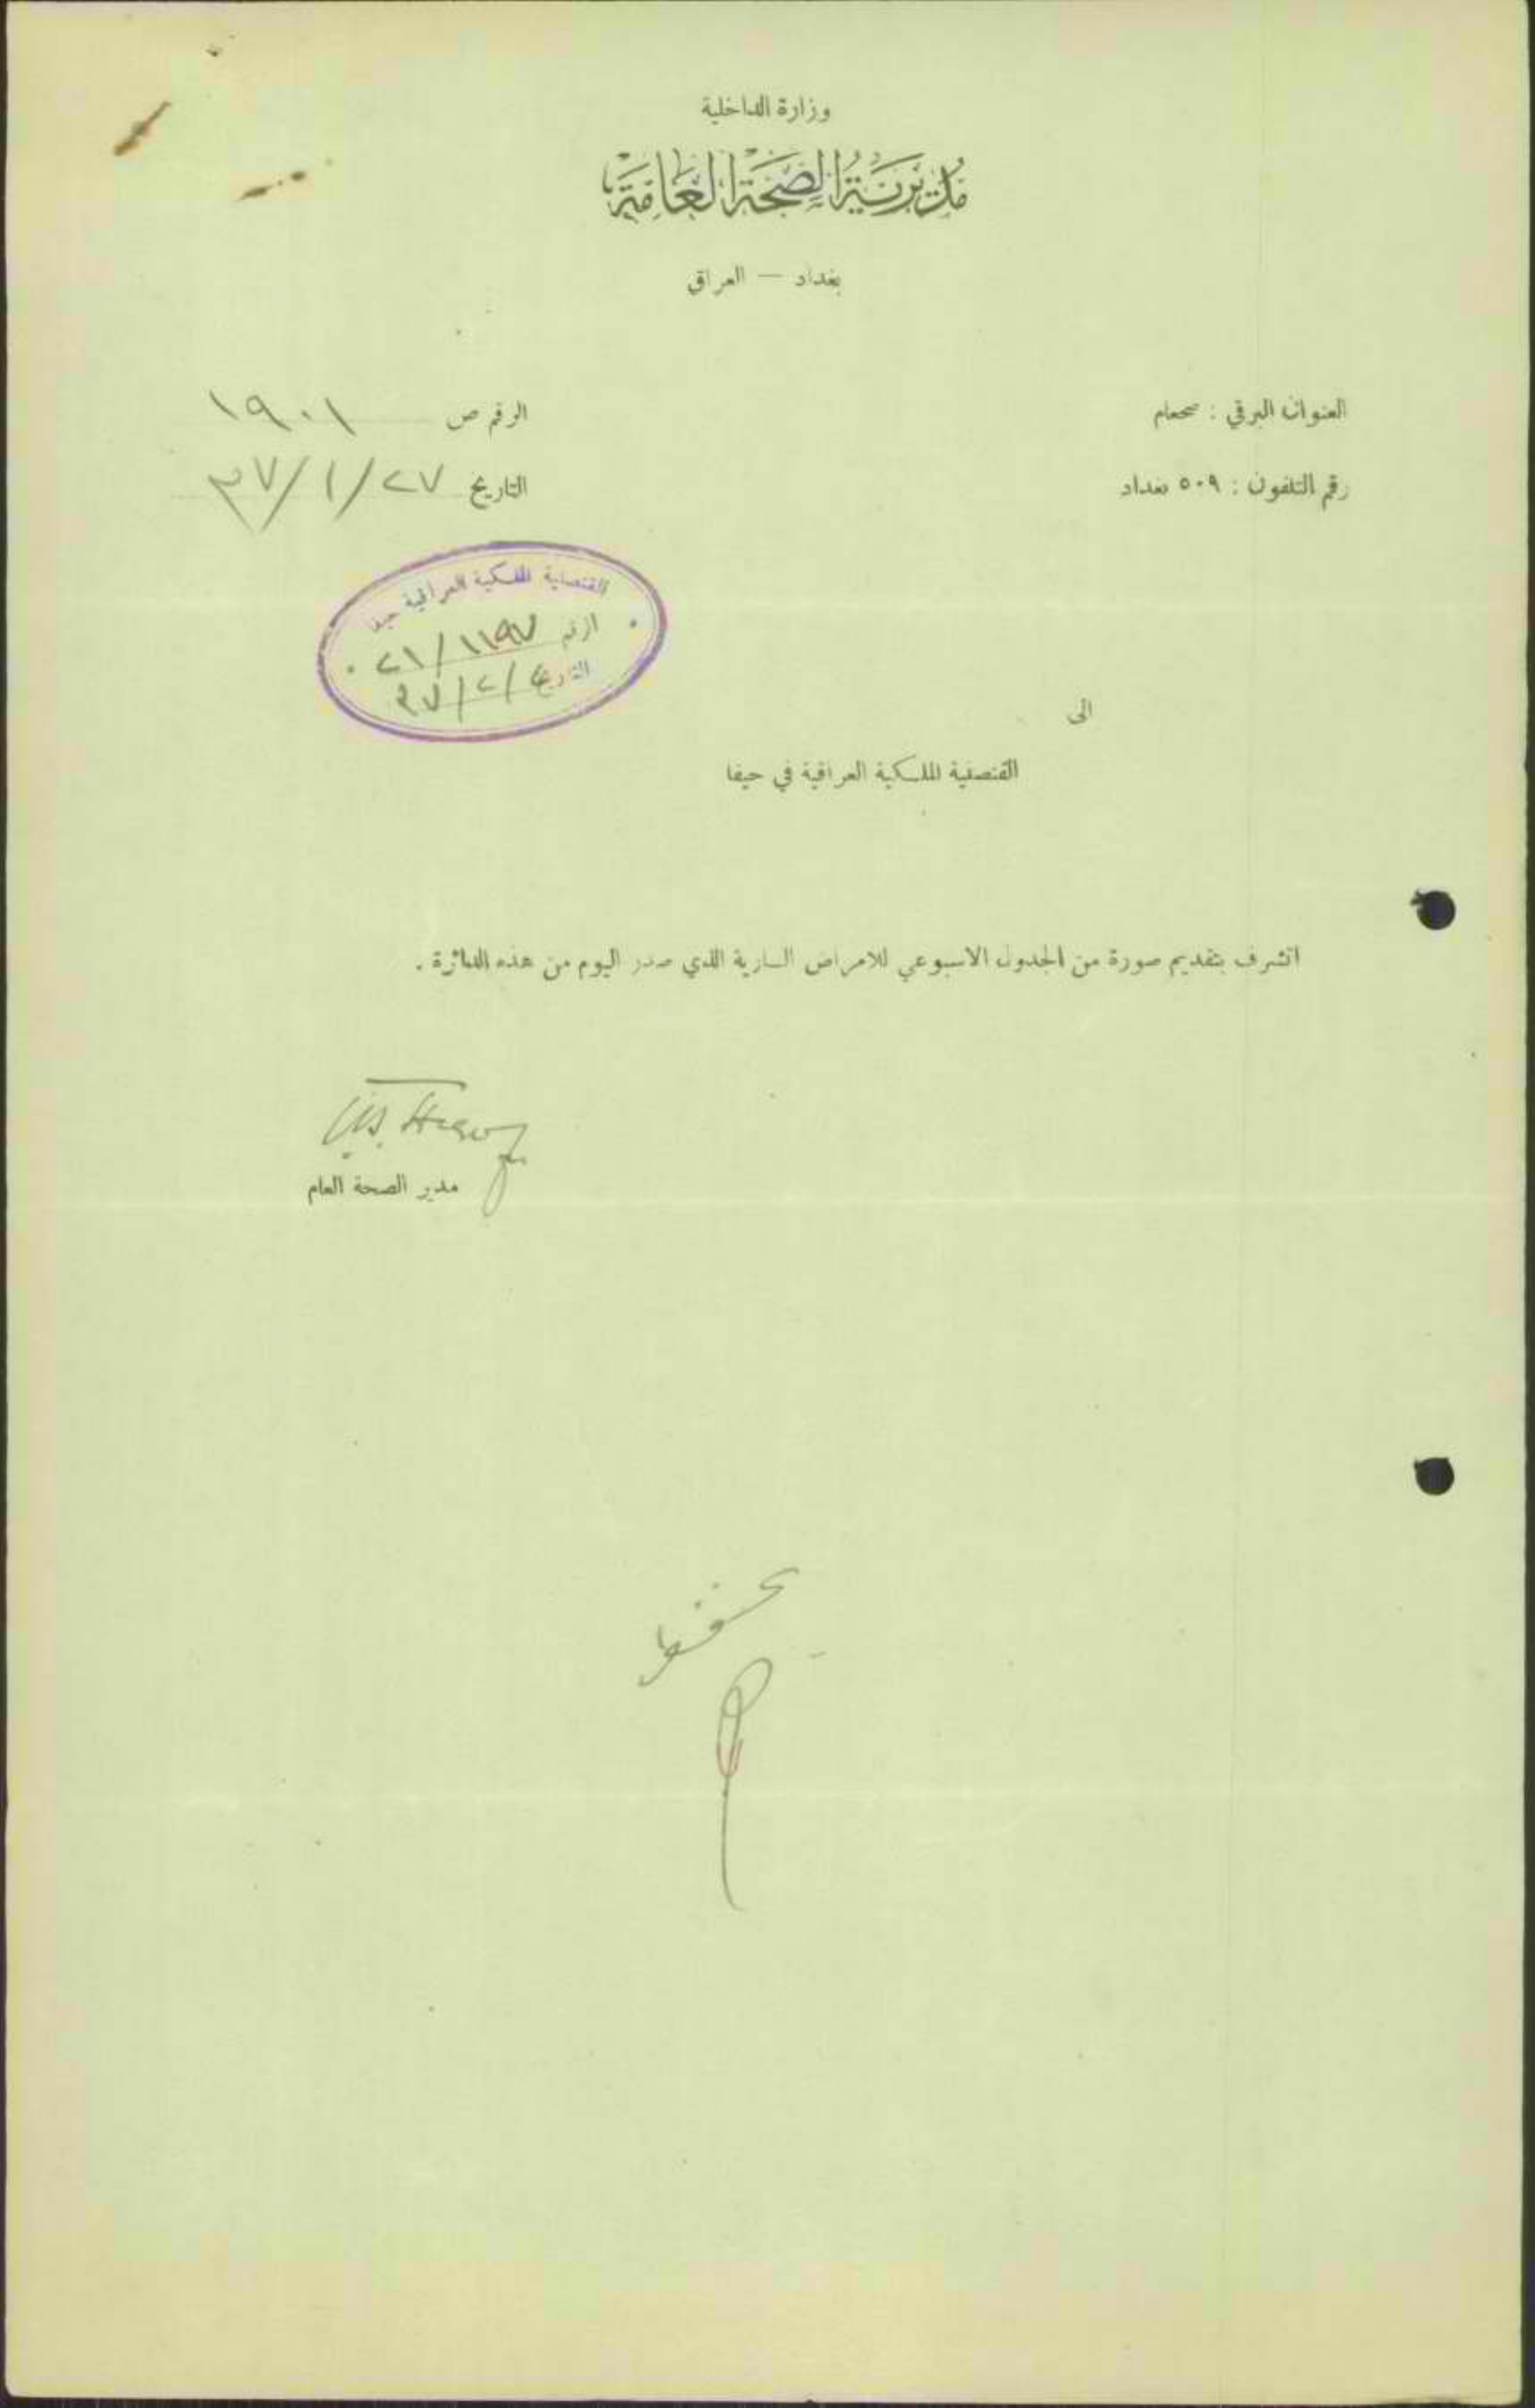 وزارة الداخلية
مُدِيرِيَّةُ الصِّحَّةِ الْعَامَّةِ
بغداد — العراق
العنوان البرقي : صحعام
الرقم ص ١٩٠١
رقم التلفون : ٥٠٩ بغداد
التاريخ ٢٧/١/٣٧
القنصلية الملكية العراقية حيفا
الرقم ٢١/١١٩٧
التاريخ ٤/٢/٣٧
الى
القنصلية الملكية العراقية في حيفا
اتشرف بتقديم صورة من الجدول الاسبوعي للامراض السارية الذي صدر اليوم من هذه الدائرة .
مدير الصحة العام
يحفظ